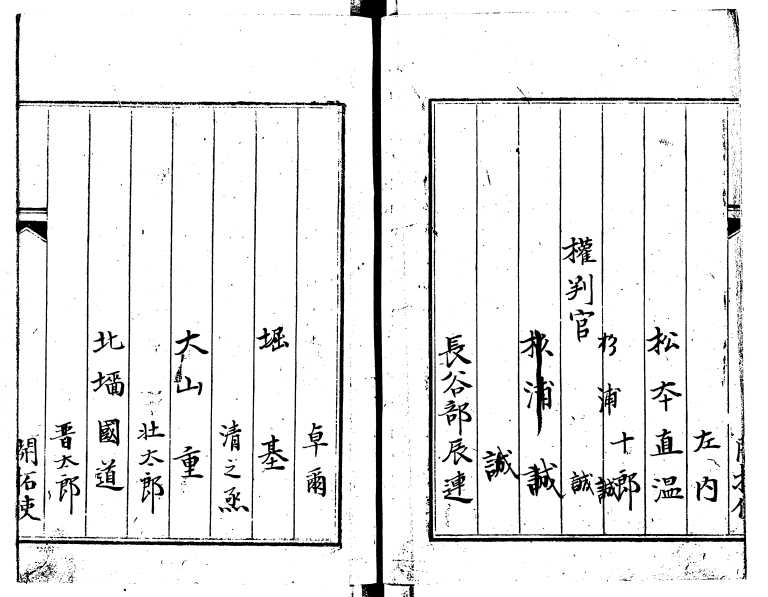 左内
松本直温
杉浦十郎
誠
權判官
誠
杉浦誠
誠
長谷部辰連
卓爾
堀基
清之烝
大山重
壯太郎
北墻國道
晋太郎
開拓使